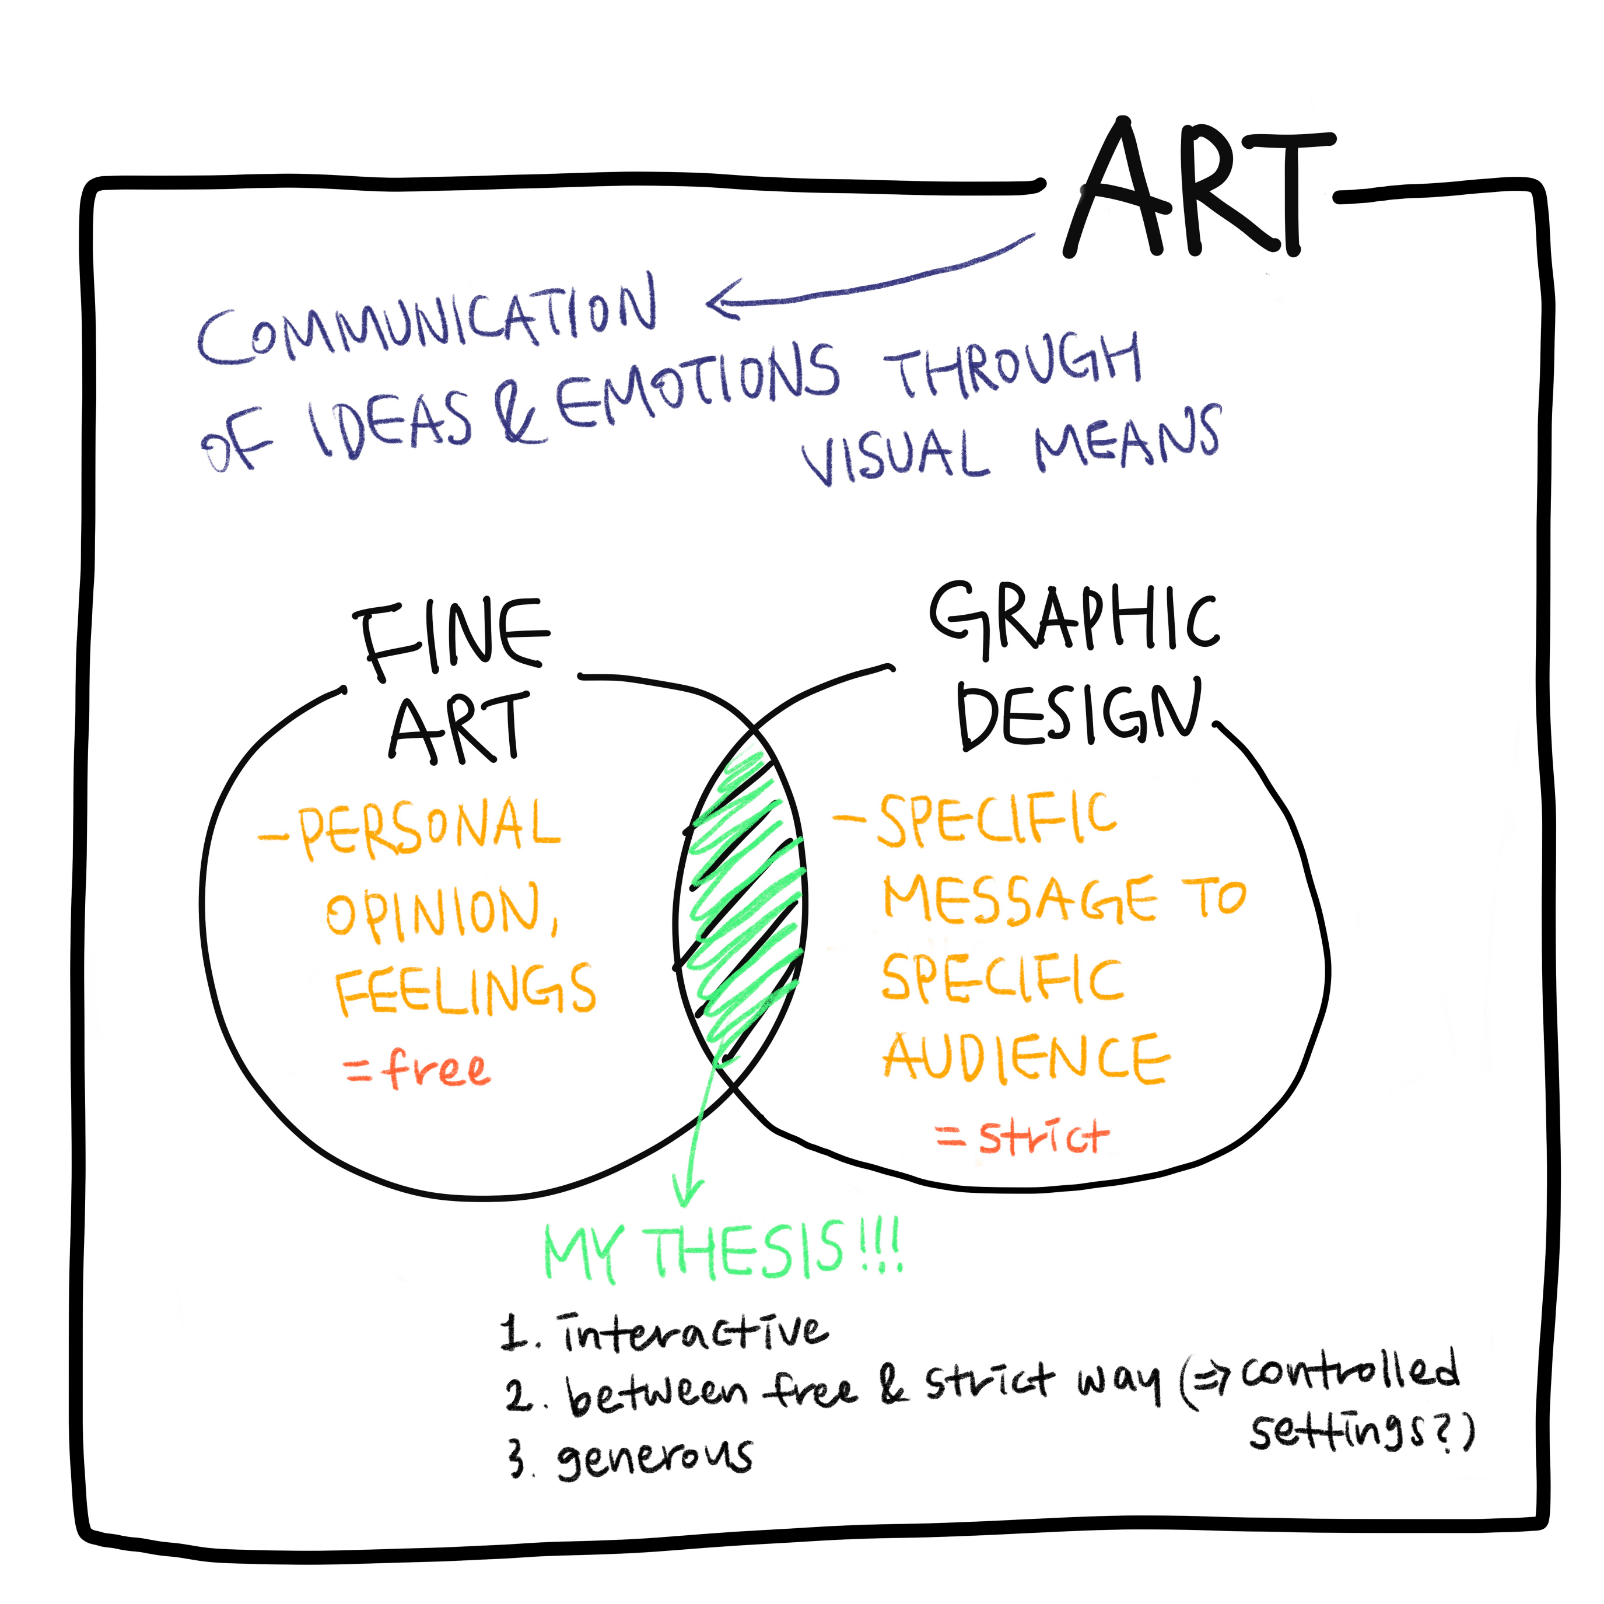 ART
COMMUNICATION
OF IDEAS & EMOTIONS THROUGH
VISUAL MEANS
FINE
ART
-PERSONAL
OPINION,
FEELINGS
=free
GRAPHIC
DESIGN
-SPECIFIC
MESSAGE TO
SPECIFIC
AUDIENCE
=strict
MY THESIS!!!
1. interactive
2. between free & strict way (⇒ controlled
settings?)
3. generous